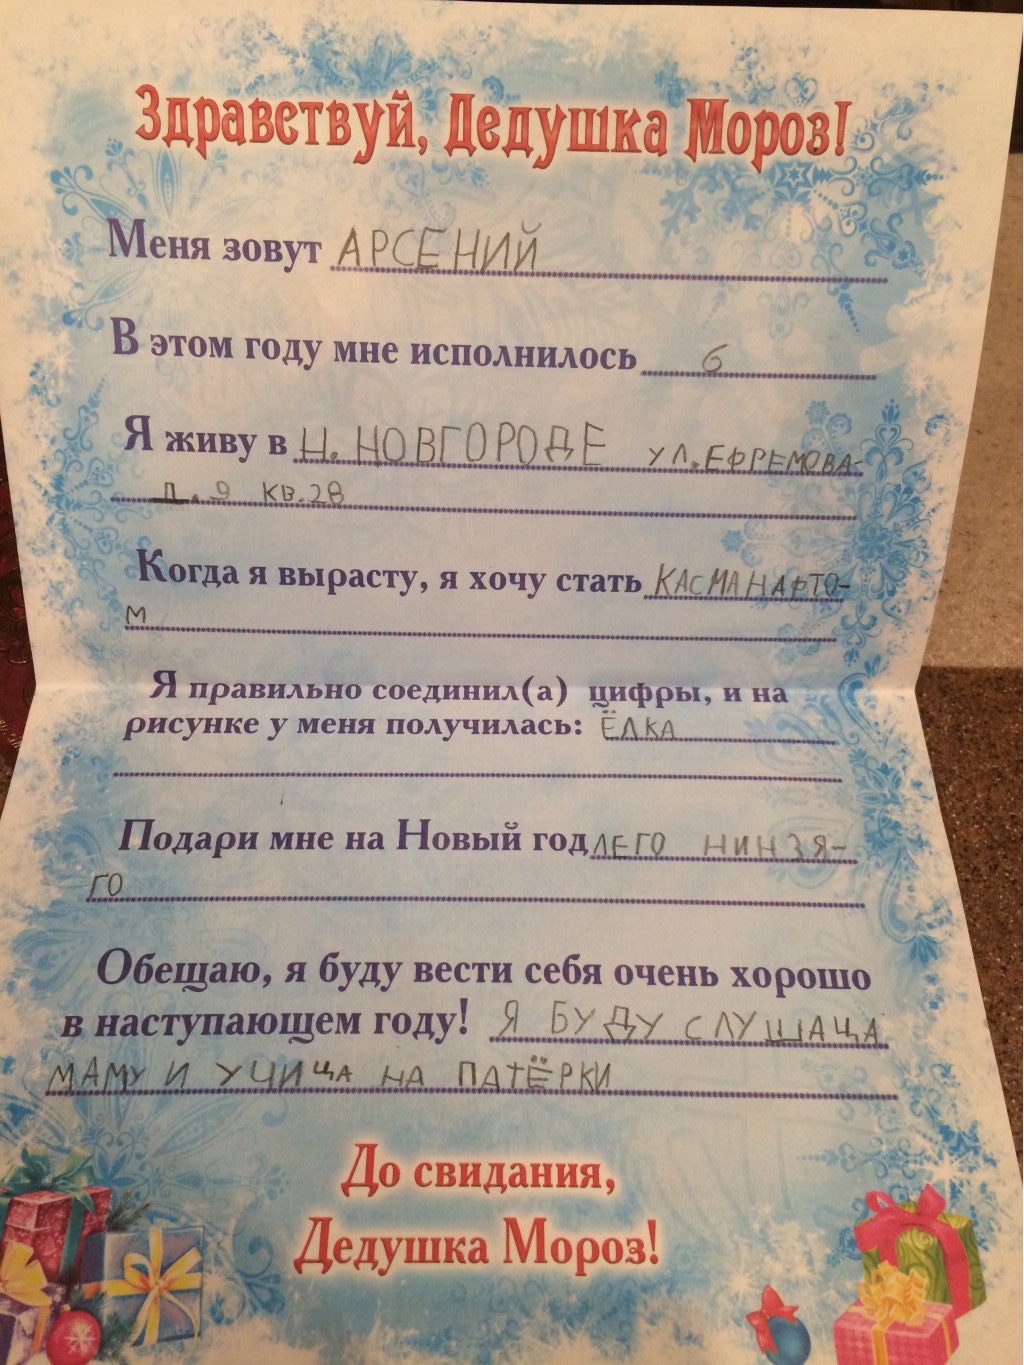 Здравствуй, Дедушка Мороз!
Меня зовут АРСЕНИЙ
В этом году мне исполнилось 6
Я живу в Н. НОВГОРОДЕ УЛ. ЕФРЕМОВА-
Д. 9 КВ. 28
Когда я вырасту, я хочу стать КАСМАНАРТО-
М
Я правильно соединил(а) цифры, и на
рисунке у меня получилась: ЁЛКА
Подари мне на Новый год ЛЕГО НИНЗЯ-
ГО
Обещаю, я буду вести себя очень хорошо
в наступающем году! Я БУДУ СЛУШАЦА
МАМУ И УЧИЦА НА ПАТЁРКИ
До свидания,
Дедушка Мороз!